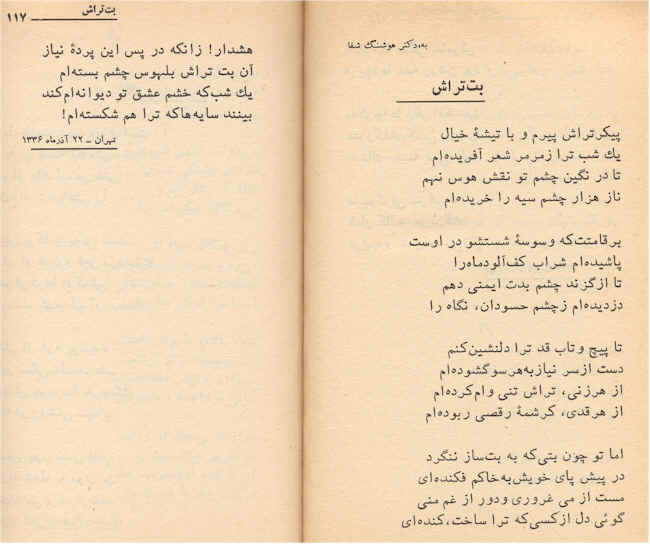 به، دکتر هوشنگ شفا
بت‌تراش
پیکرتراش پیرم و با تیشهٔ خیال
یك شب ترا زمرمر شعر آفریده‌ام
تا در نگین چشم تو نقش هوس نهم
ناز هزار چشم سیه را خریده‌ام
برقامتت‌که وسوسهٔ شستشو در اوست
پاشیده‌ام شراب کف‌آلودماه‌را
تا ازگزند چشم بدت ایمنی دهم
دزدیده‌ام زچشم حسودان، نگاه را
تا پیچ و تاب قد ترا دلنشین‌کنم
دست ازسر نیازبه‌هرسوگشوده‌ام
از هرزنی، تراش تنی وام‌کرده‌ام
از هرقدی، کرشمهٔ رقصی ربوده‌ام
اما تو چون بتی‌که به بت‌ساز ننگرد
در پیش پای خویش‌به‌خاکم فکنده‌ای
مست از می غروری ودور از غم منی
گوئی دل ازکسی‌که ترا ساخت،کنده‌ای
بت‌تراش ۱۱۷
هشدار! زانکه در پس این پردهٔ نیاز
آن بت تراش بلهوس چشم بسته‌ام
یك شب‌که خشم عشق تو دیوانه‌ام‌کند
بینند سایه‌هاکه ترا هم شکسته‌ام!
تهران ــ ۲۲ آذرماه ۱۳۳۶